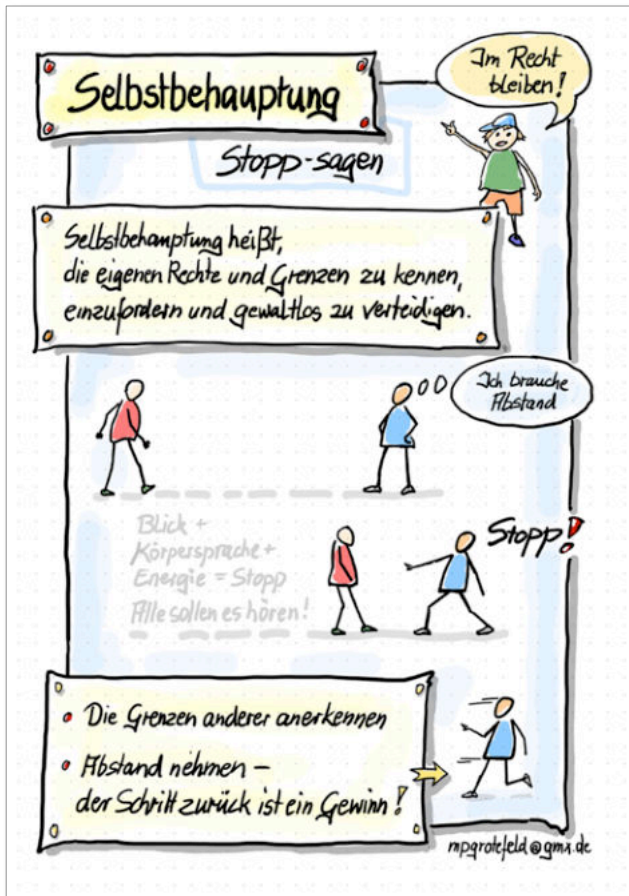 Selbstbehauptung
Im Recht
bleiben!
Stopp-sagen
Selbstbehauptung heißt,
die eigenen Rechte und Grenzen zu kennen,
einzufordern und gewaltlos zu verteidigen.
Ich brauche
Abstand
Stopp!
Blick +
Körpersprache +
Energie = Stopp
Alle sollen es hören!
• Die Grenzen anderer anerkennen
• Abstand nehmen –
der Schritt zurück ist ein Gewinn!
mpgrotefeld@gmx.de